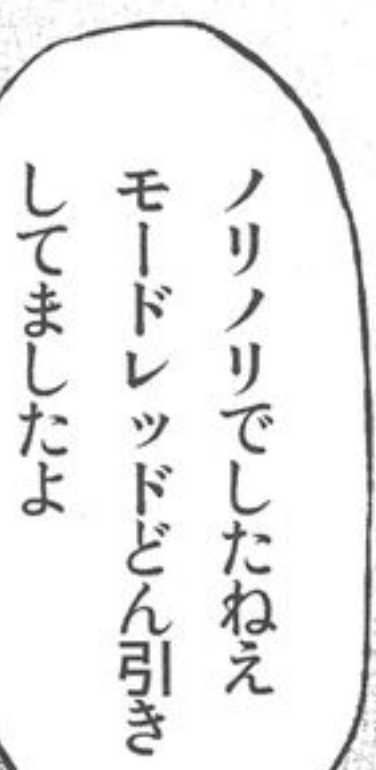 ノリノリでしたねえ
モードレッドどん引き
してましたよ